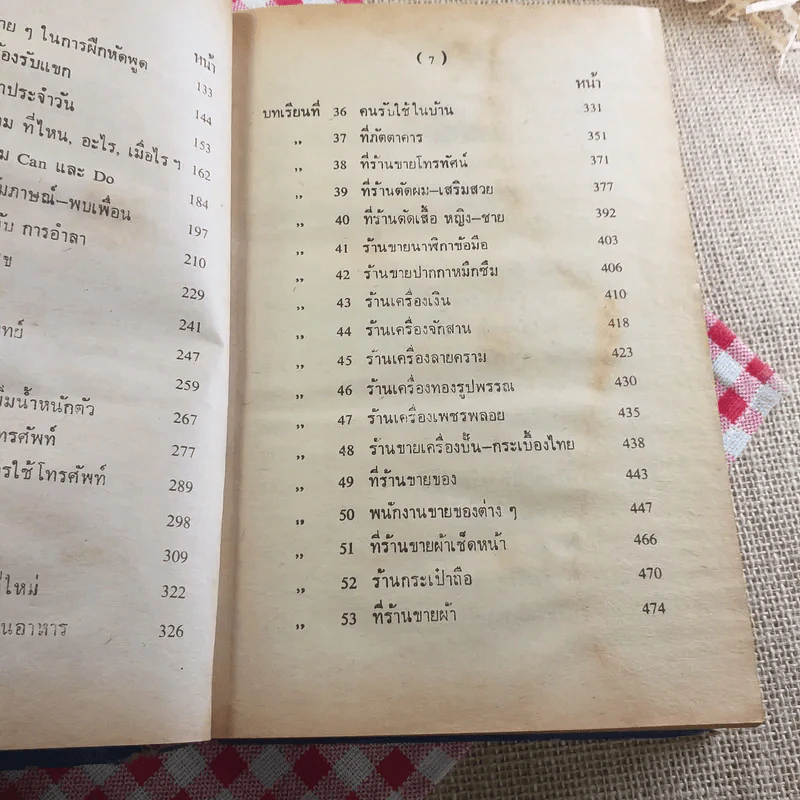 ๆ ในการฝึกหัดพูด หน้า
รับแขก 133
ประจำวัน 144
ที่ไหน, อะไร, เมื่อไร ฯ 153
Can และ Do 162
ภาษณ์–พบเพื่อน 184
การอำลา 197
210
229
241
247
259
น้ำหนักตัว 267
277
ใช้โทรศัพท์ 289
298
309
ใหม่ 322
อาหาร 326
( 7 )
หน้า
บทเรียนที่ 36 คนรับใช้ในบ้าน 331
„ 37 ที่ภัตตาคาร 351
„ 38 ที่ร้านขายโทรทัศน์ 371
„ 39 ที่ร้านตัดผม–เสริมสวย 377
„ 40 ที่ร้านตัดเสื้อ หญิง–ชาย 392
„ 41 ร้านขายนาฬิกาข้อมือ 403
„ 42 ร้านขายปากกาหมึกซึม 406
„ 43 ร้านเครื่องเงิน 410
„ 44 ร้านเครื่องจักสาน 418
„ 45 ร้านเครื่องลายคราม 423
„ 46 ร้านเครื่องทองรูปพรรณ 430
„ 47 ร้านเครื่องเพชรพลอย 435
„ 48 ร้านขายเครื่องปั้น–กระเบื้องไทย 438
„ 49 ที่ร้านขายของ 443
„ 50 พนักงานขายของต่าง ๆ 447
„ 51 ที่ร้านขายผ้าเช็ดหน้า 466
„ 52 ร้านกระเป๋าถือ 470
„ 53 ที่ร้านขายผ้า 474